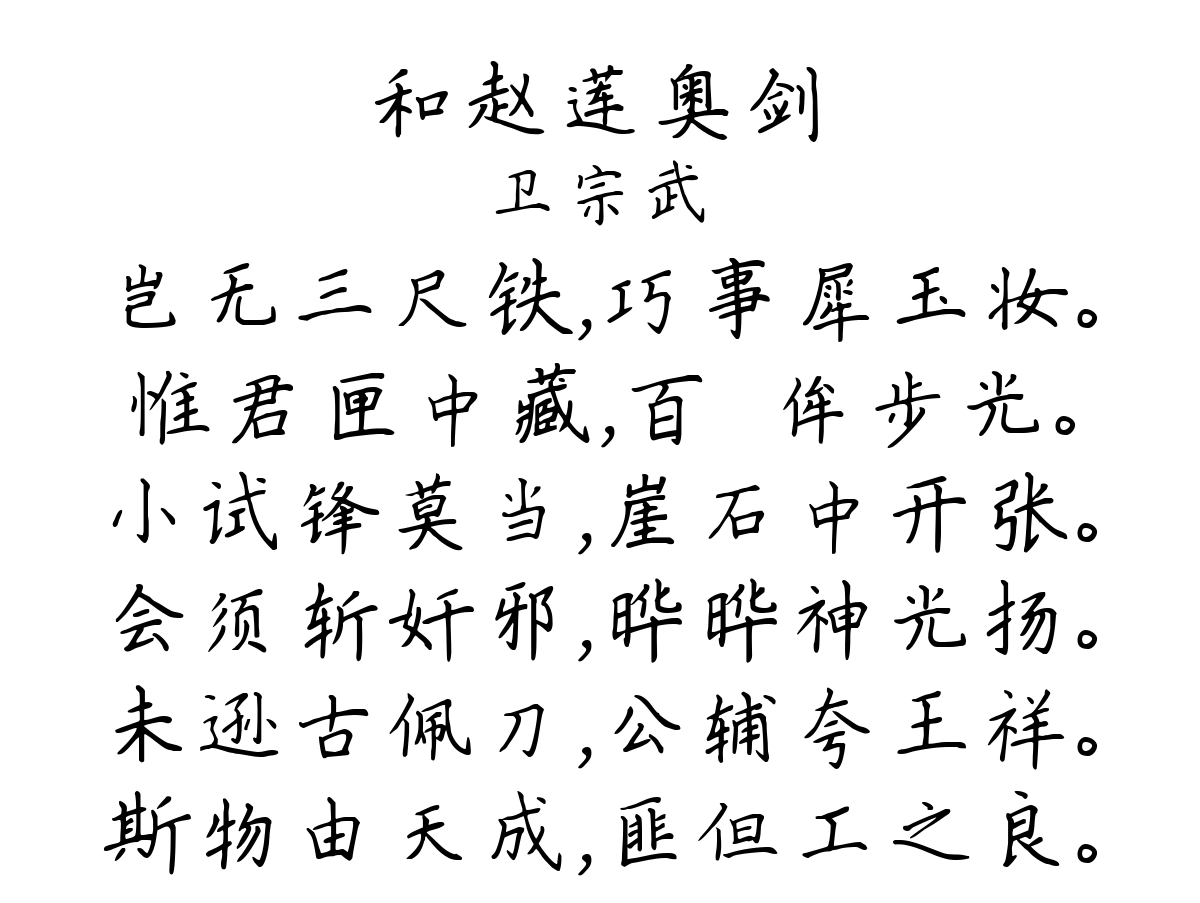 和赵莲奥剑
卫宗武
岂无三尺铁,巧事犀玉妆。
惟君匣中藏,百 侔步光。
小试锋莫当,崖石中开张。
会须斩奸邪,晔晔神光扬。
未逊古佩刀,公辅夸王祥。
斯物由天成,匪但工之良。